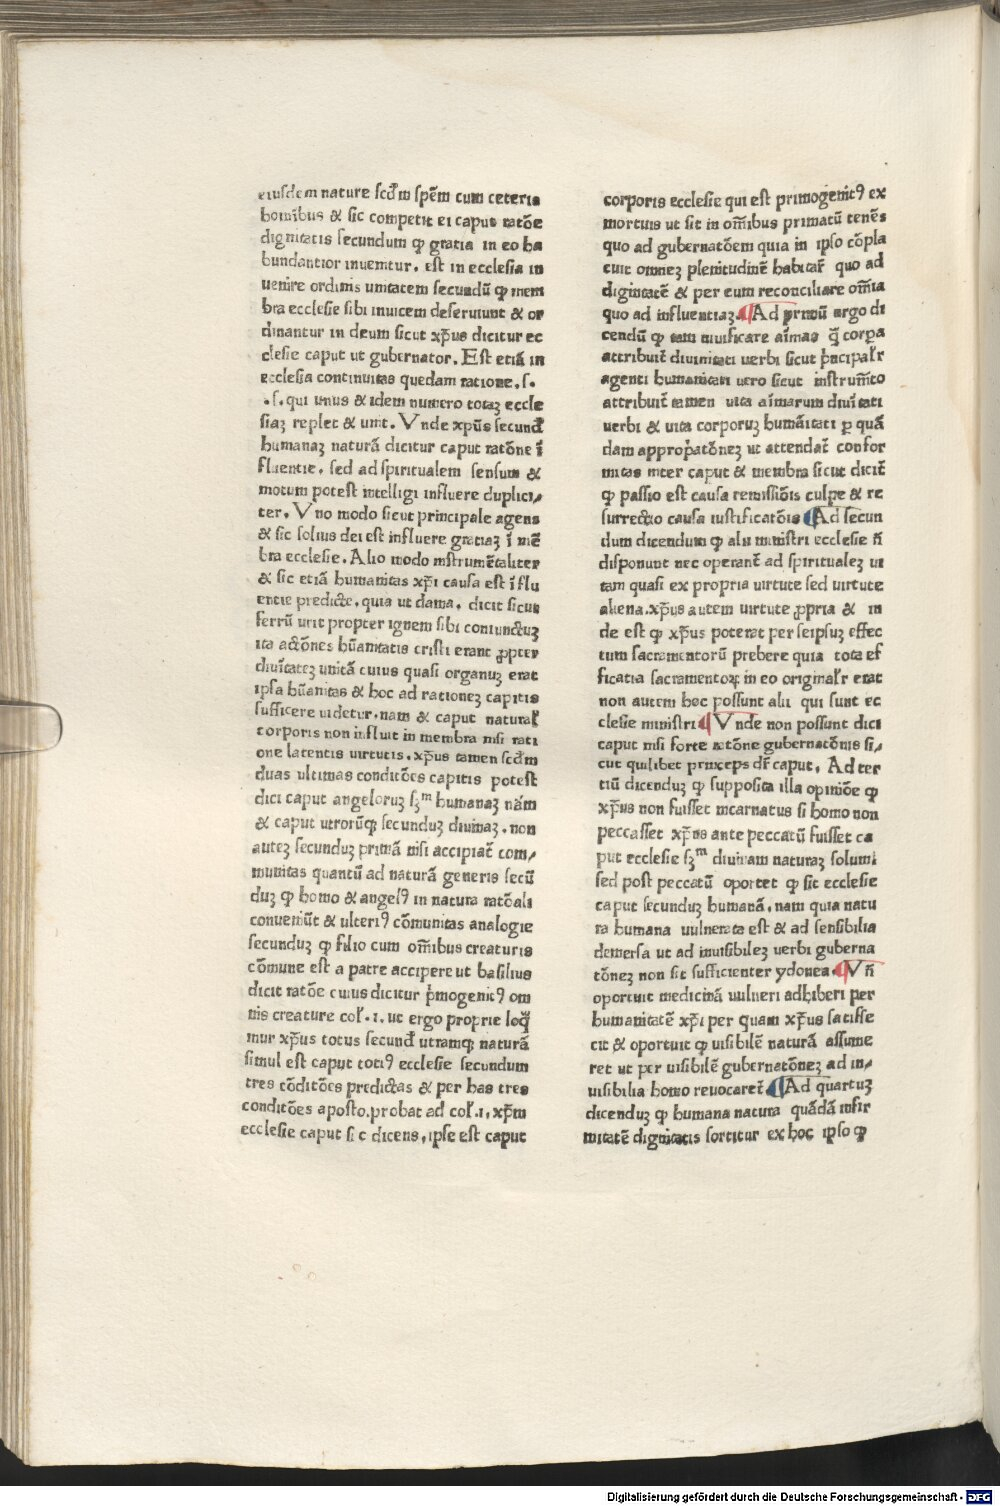 eiusdem nature scd̃m spẽm cum ceteris
homĩbus & sic competit ei caput ratõe
dignitatis secundum ꝙ gratia in eo ha
bundantior inuenitur. est in ecclesia in
uenire ordinis unitatem secundũ ꝙ mem
bra ecclesie sibi inuicem deseruiunt & or
dinantur in deum sicut xp̃us dicitur ec
clesie caput ut gubernator. Est etiã in
ecclesia continuitas quedam ratione. s.
.s. qui unus & idem numero totaꝫ eccle
siaꝫ replet & unit. Vnde xpũs secund̃
humanaꝫ naturã dicitur caput ratõne ĩ
fluentie. sed ad spiritualem sensum &
motum potest intelligi influere duplici⸗
ter. Vno modo sicut principale agens
& sic solius dei est influere gratiaꝫ ĩ mẽ
bra ecclesie. Alio modo instrumẽtaliter
& sic etiã humanitas xp̃i causa est ĩflu
entie predicte. quia ut dama. dicit sicut
ferrũ urit propter ignem sibi coniunctuꝫ
ita actõnes hũanitatis cristi erant ꝓpter
diuĩtateꝫ unitã cuius quasi organuꝫ erat
ipsa hũanitas & hoc ad rationeꝫ capitis
sufficere uidetur. nam & caput natural̃
corporis non influit in membra nisi rati
one latentis uirtutis. xp̃us tamen scd̃m
duas ultimas conditões capitis potest
dici caput angeloruꝫ sꝫᵐ humanaꝫ nãm
& caput utrorũqꝫ secunduꝫ diuinaꝫ. non
auteꝫ secunduꝫ primã nisi accipiat̃ com⸗
munitas quantũ ad naturã generis secũ
duꝫ ꝙ homo & angelꝰ in natura ratõali
conueniũt & ulteriꝰ cõmunitas analogie
secunduꝫ ꝙ filio cum om̃ibus creaturis
cõmune est a patre accipere ut basilius
dicit ratõe cuius dicitur p̃mogenitꝰ om
nis creature col̃.1. ut ergo proprie loq̃
mur xp̃us totus secund̃ utramqꝫ naturã
simul est caput totiꝰ ecclesie secundum
tres cõditões predictas & per has tres
conditões aposto.probat ad col̃.1. xp̃m
ecclesie caput si c dicens. ipse est caput
corporis ecclesie qui est primogenitꝰ ex
mortuis ut sit in om̃ibus primatũ tenẽs
quo ad gubernatõem quia in ipso cõpla
cuit omneꝫ plenitudinẽ habitar̃ quo ad
dignitatẽ & per eum reconciliare om̃ia
quo ad influentiaꝫ. Ad primũ ergo di
cendũ ꝙ tam uiuificare aĩmas q̃ corpa
attribuit̃ diuinitati uerbi sicut p̃ncipal̃r
agenti humanitati uero sicut instrum̃to
attribuit̃ tamen uita aĩmarum diuĩtati
uerbi & uita corporuꝫ humãitati ꝑ quã
dam approp̃atõneꝫ ut attendat̃ confor
mitas inter caput & membra sicut dicit̃
ꝙ passio est causa remissiõis culpe & re
surrectio causa iustificatõis Ad secun
dum dicendum ꝙ alii ministri ecclesie ñ
disponunt nec operant̃ ad spiritualeꝫ ui
tam quasi ex propria uirtute sed uirtute
aliena. xp̃us autem uirtute ꝓpria & in
de est ꝙ xp̃us poterat per seipsuꝫ effec
tum sacramentorũ prebere quia tota ef
ficatia sacramentoꝝ in eo original̃r erat
non autem hoc possunt alii qui sunt ec
clesie ministri Vnde non possunt dici
caput nisi forte ratõne gubernatõnis si⸗
cut quilibet princeps dr̃ caput. Ad ter
tiũ dicenduꝫ ꝙ supposita illa opiniõe ꝙ
xp̃us non fuisset incarnatus si homo non
peccasset xp̃us ante peccatũ fuisset ca
put ecclesie sꝫᵐ diuinam naturaꝫ solum̃
sed post peccatũ oportet ꝙ sit ecclesie
caput secunduꝫ humanã. nam quia natu
ra humana uulnerata est & ad sensibilia
demersa ut ad inuisibileꝫ uerbi guberna
tõneꝫ non sit sufficienter ydonea. Vñ
oportuit medicinã uulneri adhiberi per
humanitatẽ xp̃i per quam xp̃us satisfe
cit & oportuit ꝙ uisibilẽ naturã assume
ret ut per uisibilẽ gubernatõneꝫ ad in⸗
uisibilia homo reuocaret̃ Ad quartuꝫ
dicenduꝫ ꝙ humana natura quãdã infir
mitatẽ dignitatis sortitur ex hoc ipso ꝙ
Digitalisierung gefördert durch die Deutsche Forschungsgemeinschaft - DFG